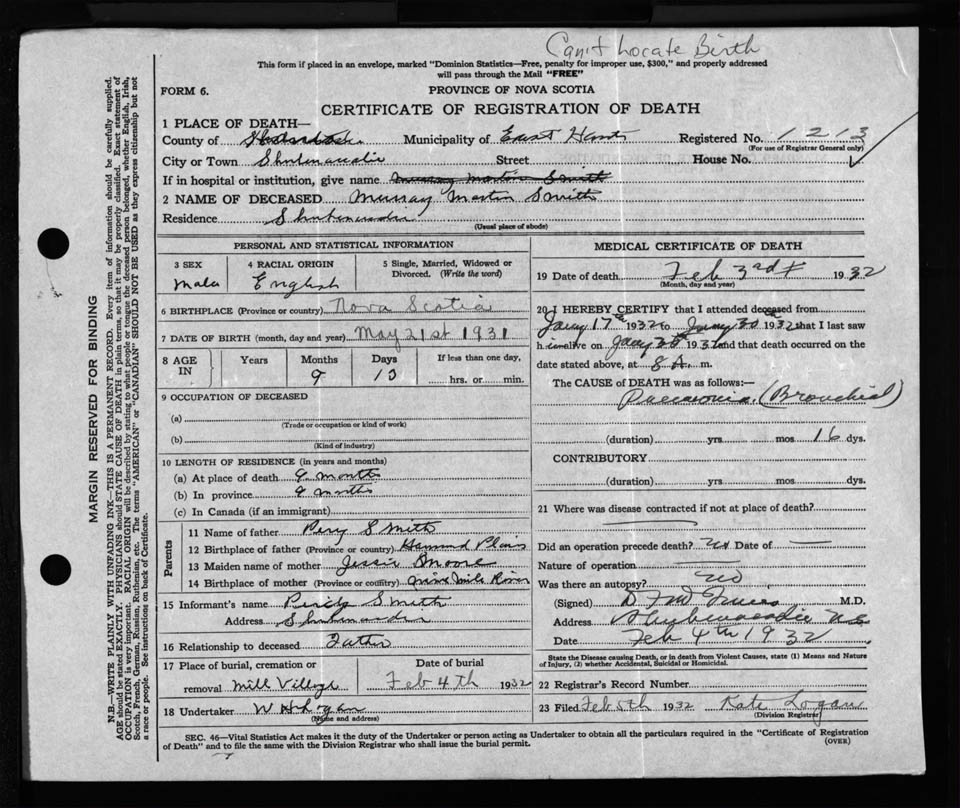 Can't Locate Birth
This form if placed in an envelope, marked "Dominion Statistics—Free, penalty for improper use, $300," and properly addressed
will pass through the Mail "FREE"
FORM 6.
PROVINCE OF NOVA SCOTIA
CERTIFICATE OF REGISTRATION OF DEATH
1 PLACE OF DEATH—
County of Municipality of East Hants Registered No. 1213
(For use of Registrar General only)
City or Town Shubenacadie Street House No.
If in hospital or institution, give name Murray Martin Smith
2 NAME OF DECEASED Murray Martin Smith
Residence Shubenacadie
(Usual place of abode)
PERSONAL AND STATISTICAL INFORMATION
3 SEX
Male
4 RACIAL ORIGIN
English
5 Single, Married, Widowed or
Divorced. (Write the word)
6 BIRTHPLACE (Province or country) Nova Scotia
7 DATE OF BIRTH (month, day and year) May 21st 1931
8 AGE
IN
Years
Months
9
Days
13
If less than one day,
hrs. or min.
9 OCCUPATION OF DECEASED
(a)
(Trade or occupation or kind of work)
(b)
(Kind of industry)
10 LENGTH OF RESIDENCE (in years and months)
(a) At place of death 9 months
(b) In province 9 months
(c) In Canada (if an immigrant)
Parents
11 Name of father Percy Smith
12 Birthplace of father (Province or country) Hammond Plains
13 Maiden name of mother Jessie Moore
14 Birthplace of mother (Province or country) Nine Mile River
15 Informant's name Percy Smith
Address Shubenacadie
16 Relationship to deceased Father
17 Place of burial, cremation or
removal Mill Village
Date of burial
Feb 4th 1932
18 Undertaker W H Logan
(Name and address)
MEDICAL CERTIFICATE OF DEATH
19 Date of death Feb 3rd 1932
(Month, day and year)
20 I HEREBY CERTIFY that I attended deceased from
Jany 17th 1932 to Jany 30th 1932 that I last saw
h alive on Jany 1932 and that death occurred on the
date stated above, at 8 A. m.
The CAUSE OF DEATH was as follows:—
Pneumonia (Bronchial)
(duration) yrs. mos. 16 dys.
CONTRIBUTORY
(duration) yrs. mos. dys.
21 Where was disease contracted if not at place of death?
Did an operation precede death? No Date of —
Nature of operation —
Was there an autopsy? No
(Signed) M.D.
Address Shubenacadie N.S.
Date Feb 4th 1932
State the Disease causing Death, or in death from Violent Causes, state (1) Means and Nature
of Injury, (2) whether Accidental, Suicidal or Homicidal.
22 Registrar's Record Number
23 Filed Feb 5th 1932 Kate Logan
(Division Registrar)
SEC. 46—Vital Statistics Act makes it the duty of the Undertaker or person acting as Undertaker to obtain all the particulars required in the "Certificate of Registration
of Death" and to file the same with the Division Registrar who shall issue the burial permit.
(OVER)
MARGIN RESERVED FOR BINDING
N.B.—WRITE PLAINLY WITH UNFADING INK—THIS IS A PERMANENT RECORD. Every item of information should be carefully supplied.
AGE should be stated EXACTLY. PHYSICIANS should STATE CAUSE OF DEATH in plain terms, so that it may be properly classified. Exact statement of
OCCUPATION is very important. RACIAL ORIGIN will be described by stating to what people or tongue the deceased person belonged, whether English, Irish,
Scotch, French, German, Russian, Ruthenian, etc. The terms "AMERICAN" or "CANADIAN" SHOULD NOT BE USED as they express citizenship but not
a race or people. See instructions on back of Certificate.